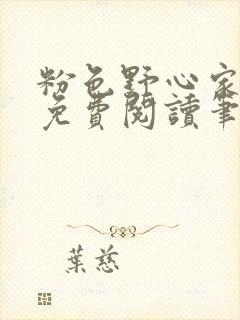 粉色野心家
免費閱讀筆
葉慈